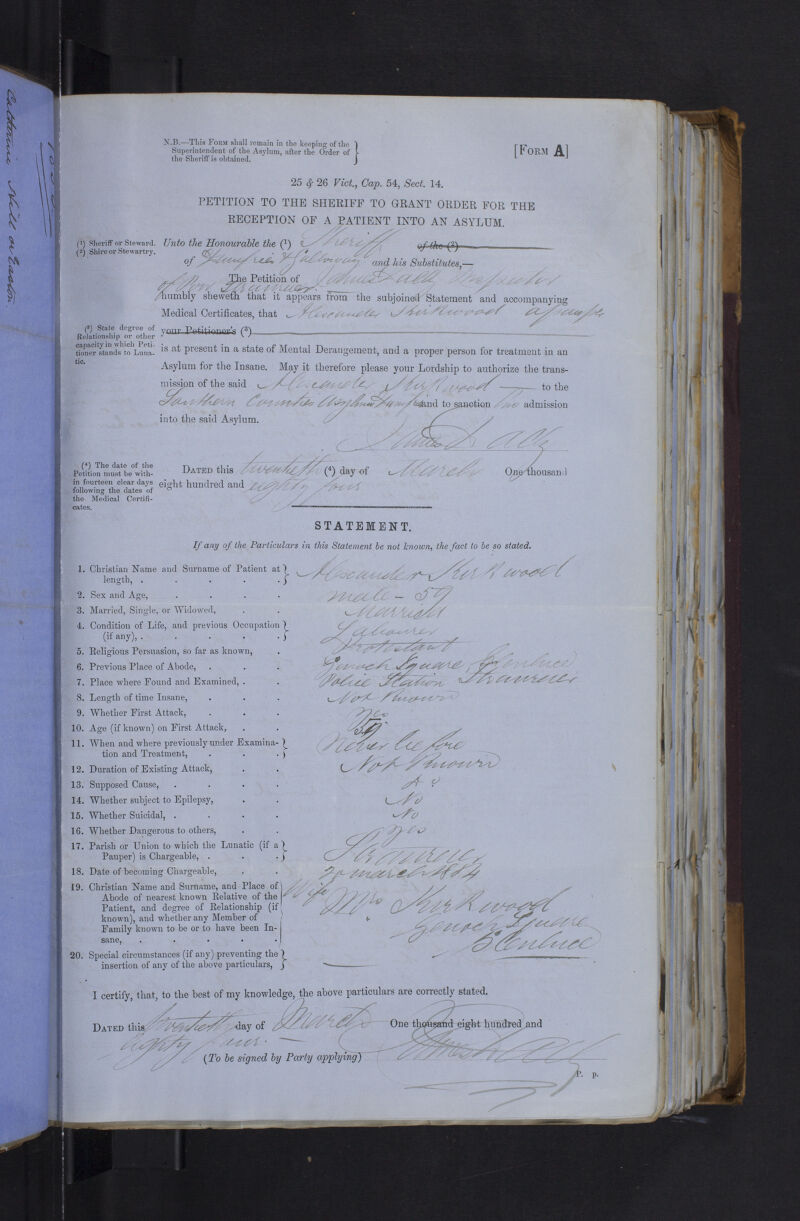 Catherine Neill or Easton
N.B.—This Form shall remain in the keeping of the
Superintendent of the Asylum, after the Order of
the Sheriff is obtained.
[Form A]
25 & 26 Vict., Cap. 54, Sect. 14.
PETITION TO THE SHERIFF TO GRANT ORDER FOR THE
RECEPTION OF A PATIENT INTO AN ASYLUM.
(1) Sheriff or Steward.
(2) Shire or Stewartry.
Unto the Honourable the (1) Sheriff of the (2)
of Dumfries & Galloway and his Substitutes,—
The Petition of James Inspector
of Poor Stranraer
humbly sheweth that it appears from the subjoined Statement and accompanying
Medical Certificates, that Alexander Kirkwood a pauper
(3) State degree of
Relationship or other
capacity in which Peti-
tioner stands to Luna-
tic.
your Petitioner's (3)
is at present in a state of Mental Derangement, and a proper person for treatment in an
Asylum for the Insane. May it therefore please your Lordship to authorize the trans-
mission of the said Alexander Kirkwood to the
Southern Counties Asylum Dumfries and to sanction his admission
into the said Asylum.
James
(4) The date of the
Petition must be with-
in fourteen clear days
following the dates of
the Medical Certifi-
cates.
Dated this twentieth (4) day of March One thousand
eight hundred and eighty four
STATEMENT.
If any of the Particulars in this Statement be not known, the fact to be so stated.
1. Christian Name and Surname of Patient at
length, . Alexander Kirkwood
2. Sex and Age, male - 59
3. Married, Single, or Widowed, Married
4. Condition of Life, and previous Occupation
(if any), . Labourer
5. Religious Persuasion, so far as known, Protestant
6. Previous Place of Abode, Genoch Square Glenluce
7. Place where Found and Examined, Police Station Stranraer
8. Length of time Insane, Not Known
9. Whether First Attack, Yes
10. Age (if known) on First Attack, 59
11. When and where previously under Examina-
tion and Treatment, Never before
12. Duration of Existing Attack, Not Known
13. Supposed Cause, Do
14. Whether subject to Epilepsy, No
15. Whether Suicidal, No
16. Whether Dangerous to others, Yes
17. Parish or Union to which the Lunatic (if a
Pauper) is Chargeable, Stranraer
18. Date of becoming Chargeable, 20 March 1884
19. Christian Name and Surname, and Place of
Abode of nearest known Relative of the
Patient, and degree of Relationship (if
known), and whether any Member of
Family known to be or to have been In-
sane,
Wife Mrs Kirkwood
Genoch Square
Glenluce
20. Special circumstances (if any) preventing the
insertion of any of the above particulars,
I certify, that, to the best of my knowledge, the above particulars are correctly stated.
Dated this twentieth day of March One thousand eight hundred and
eighty four.
(To be signed by Party applying) James
P. P.